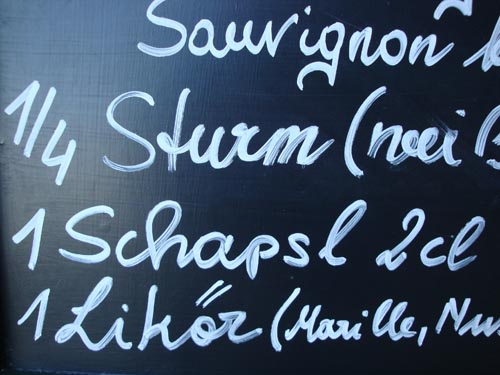 Sauvignon
1/4 Sturm (weiß
1 Schapsl 2cl
1 Likör (Marille,